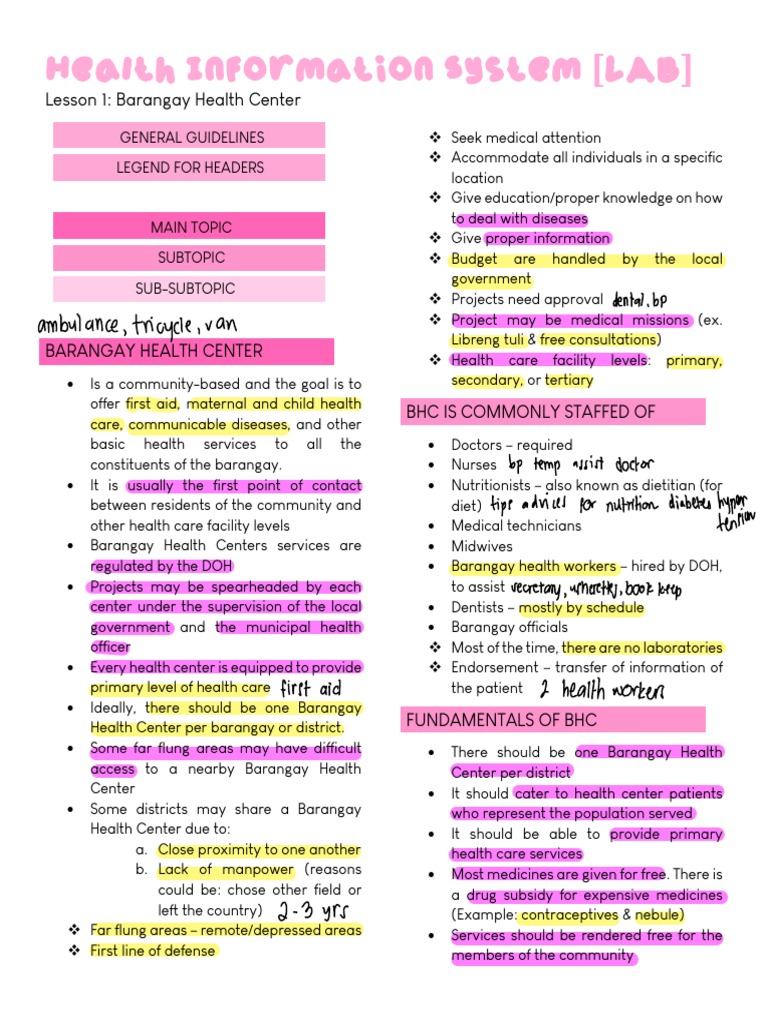 Health Information System [LAB]
Lesson 1: Barangay Health Center
GENERAL GUIDELINES
LEGEND FOR HEADERS
MAIN TOPIC
SUBTOPIC
SUB-SUBTOPIC
ambulance, tricycle, van
BARANGAY HEALTH CENTER
• Is a community-based and the goal is to
offer first aid, maternal and child health
care, communicable diseases, and other
basic health services to all the
constituents of the barangay.
• It is usually the first point of contact
between residents of the community and
other health care facility levels
• Barangay Health Centers services are
regulated by the DOH
• Projects may be spearheaded by each
center under the supervision of the local
government and the municipal health
officer
• Every health center is equipped to provide
primary level of health care first aid
• Ideally, there should be one Barangay
Health Center per barangay or district.
• Some far flung areas may have difficult
access to a nearby Barangay Health
Center
• Some districts may share a Barangay
Health Center due to:
a. Close proximity to one another
b. Lack of manpower (reasons
could be: chose other field or
left the country) 2-3 yrs
❖ Far flung areas – remote/depressed areas
❖ First line of defense
❖ Seek medical attention
❖ Accommodate all individuals in a specific
location
❖ Give education/proper knowledge on how
to deal with diseases
❖ Give proper information
❖ Budget are handled by the local
government
❖ Projects need approval dental, bp
❖ Project may be medical missions (ex.
Libreng tuli & free consultations)
❖ Health care facility levels: primary,
secondary, or tertiary
BHC IS COMMONLY STAFFED OF
• Doctors – required
• Nurses bp temp assist doctor
• Nutritionists – also known as dietitian (for
diet) tips advices for nutrition diabetes hyper
tension
• Medical technicians
• Midwives
• Barangay health workers – hired by DOH,
to assist secretary, book keep
• Dentists – mostly by schedule
• Barangay officials
❖ Most of the time, there are no laboratories
❖ Endorsement – transfer of information of
the patient 2 health workers
FUNDAMENTALS OF BHC
• There should be one Barangay Health
Center per district
• It should cater to health center patients
who represent the population served
• It should be able to provide primary
health care services
• Most medicines are given for free. There is
a drug subsidy for expensive medicines
(Example: contraceptives & nebule)
• Services should be rendered free for the
members of the community